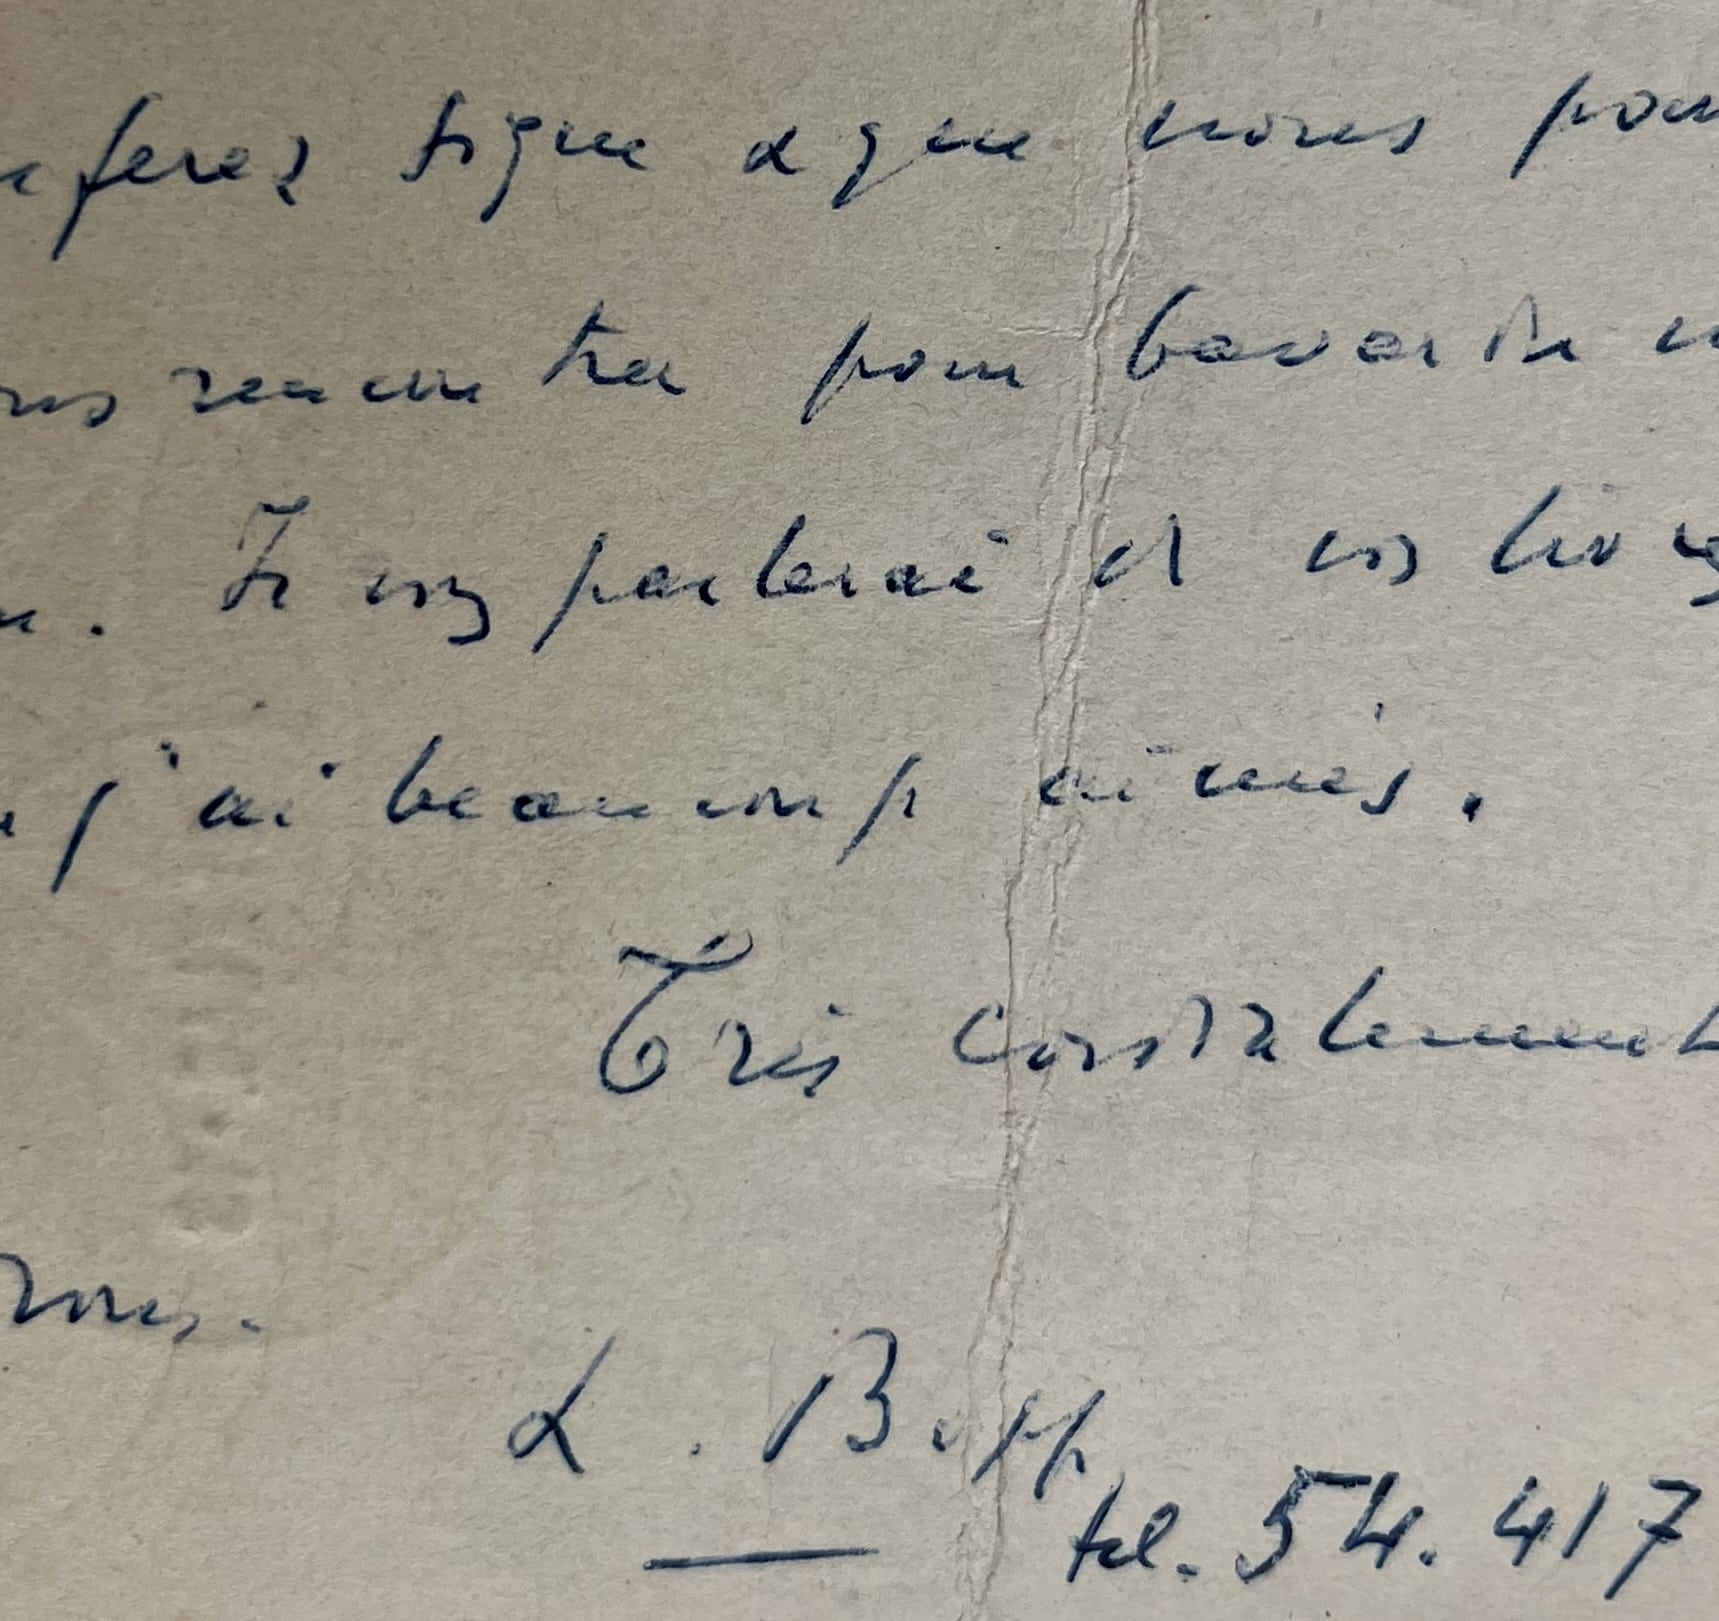 ferez signe & que nous pou
rencontrer pour bavarder
. Je vous parlerai de vos livres
j'ai beaucoup aimés.
Très cordialement
L. Bopp
tel. 54.417